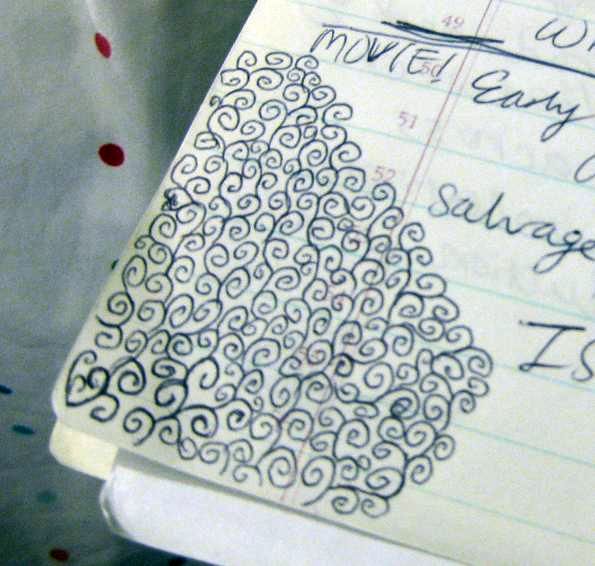 49
MOVIE! 50 Early
51
52
salvage
Is